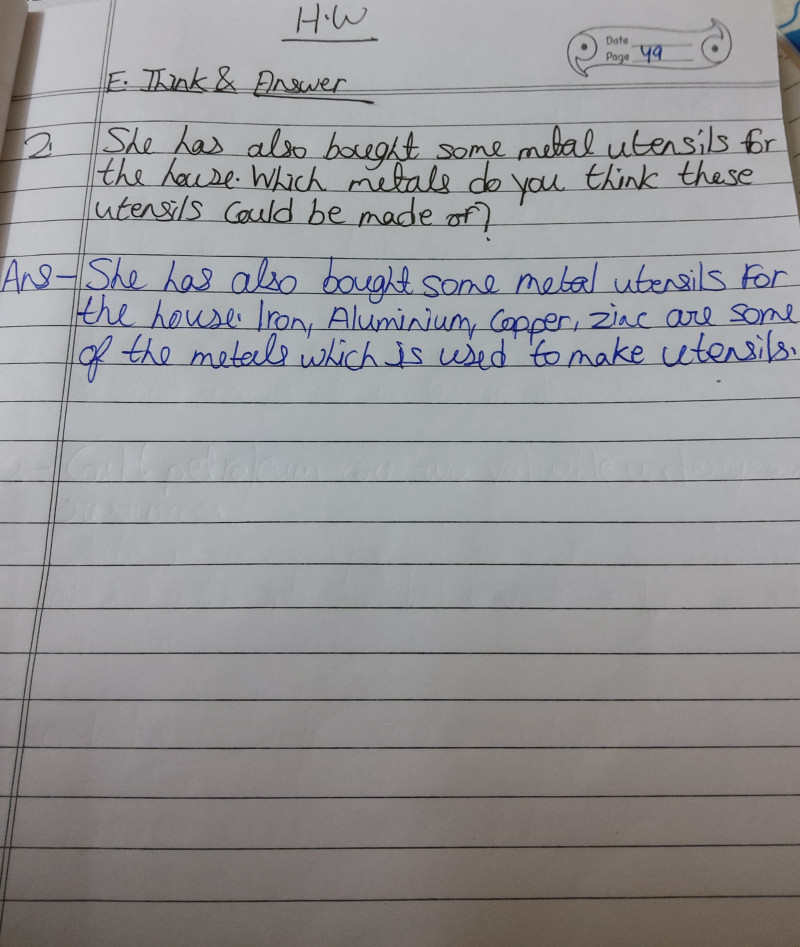 H.W
Date
Page 49
E. Think & Answer
2. She has also bought some metal utensils for
the house. Which metals do you think these
utensils could be made of?
Ans- She has also bought some metal utensils For
the house. Iron, Aluminium, Copper, zinc are some
of the metals which is used to make utensils.